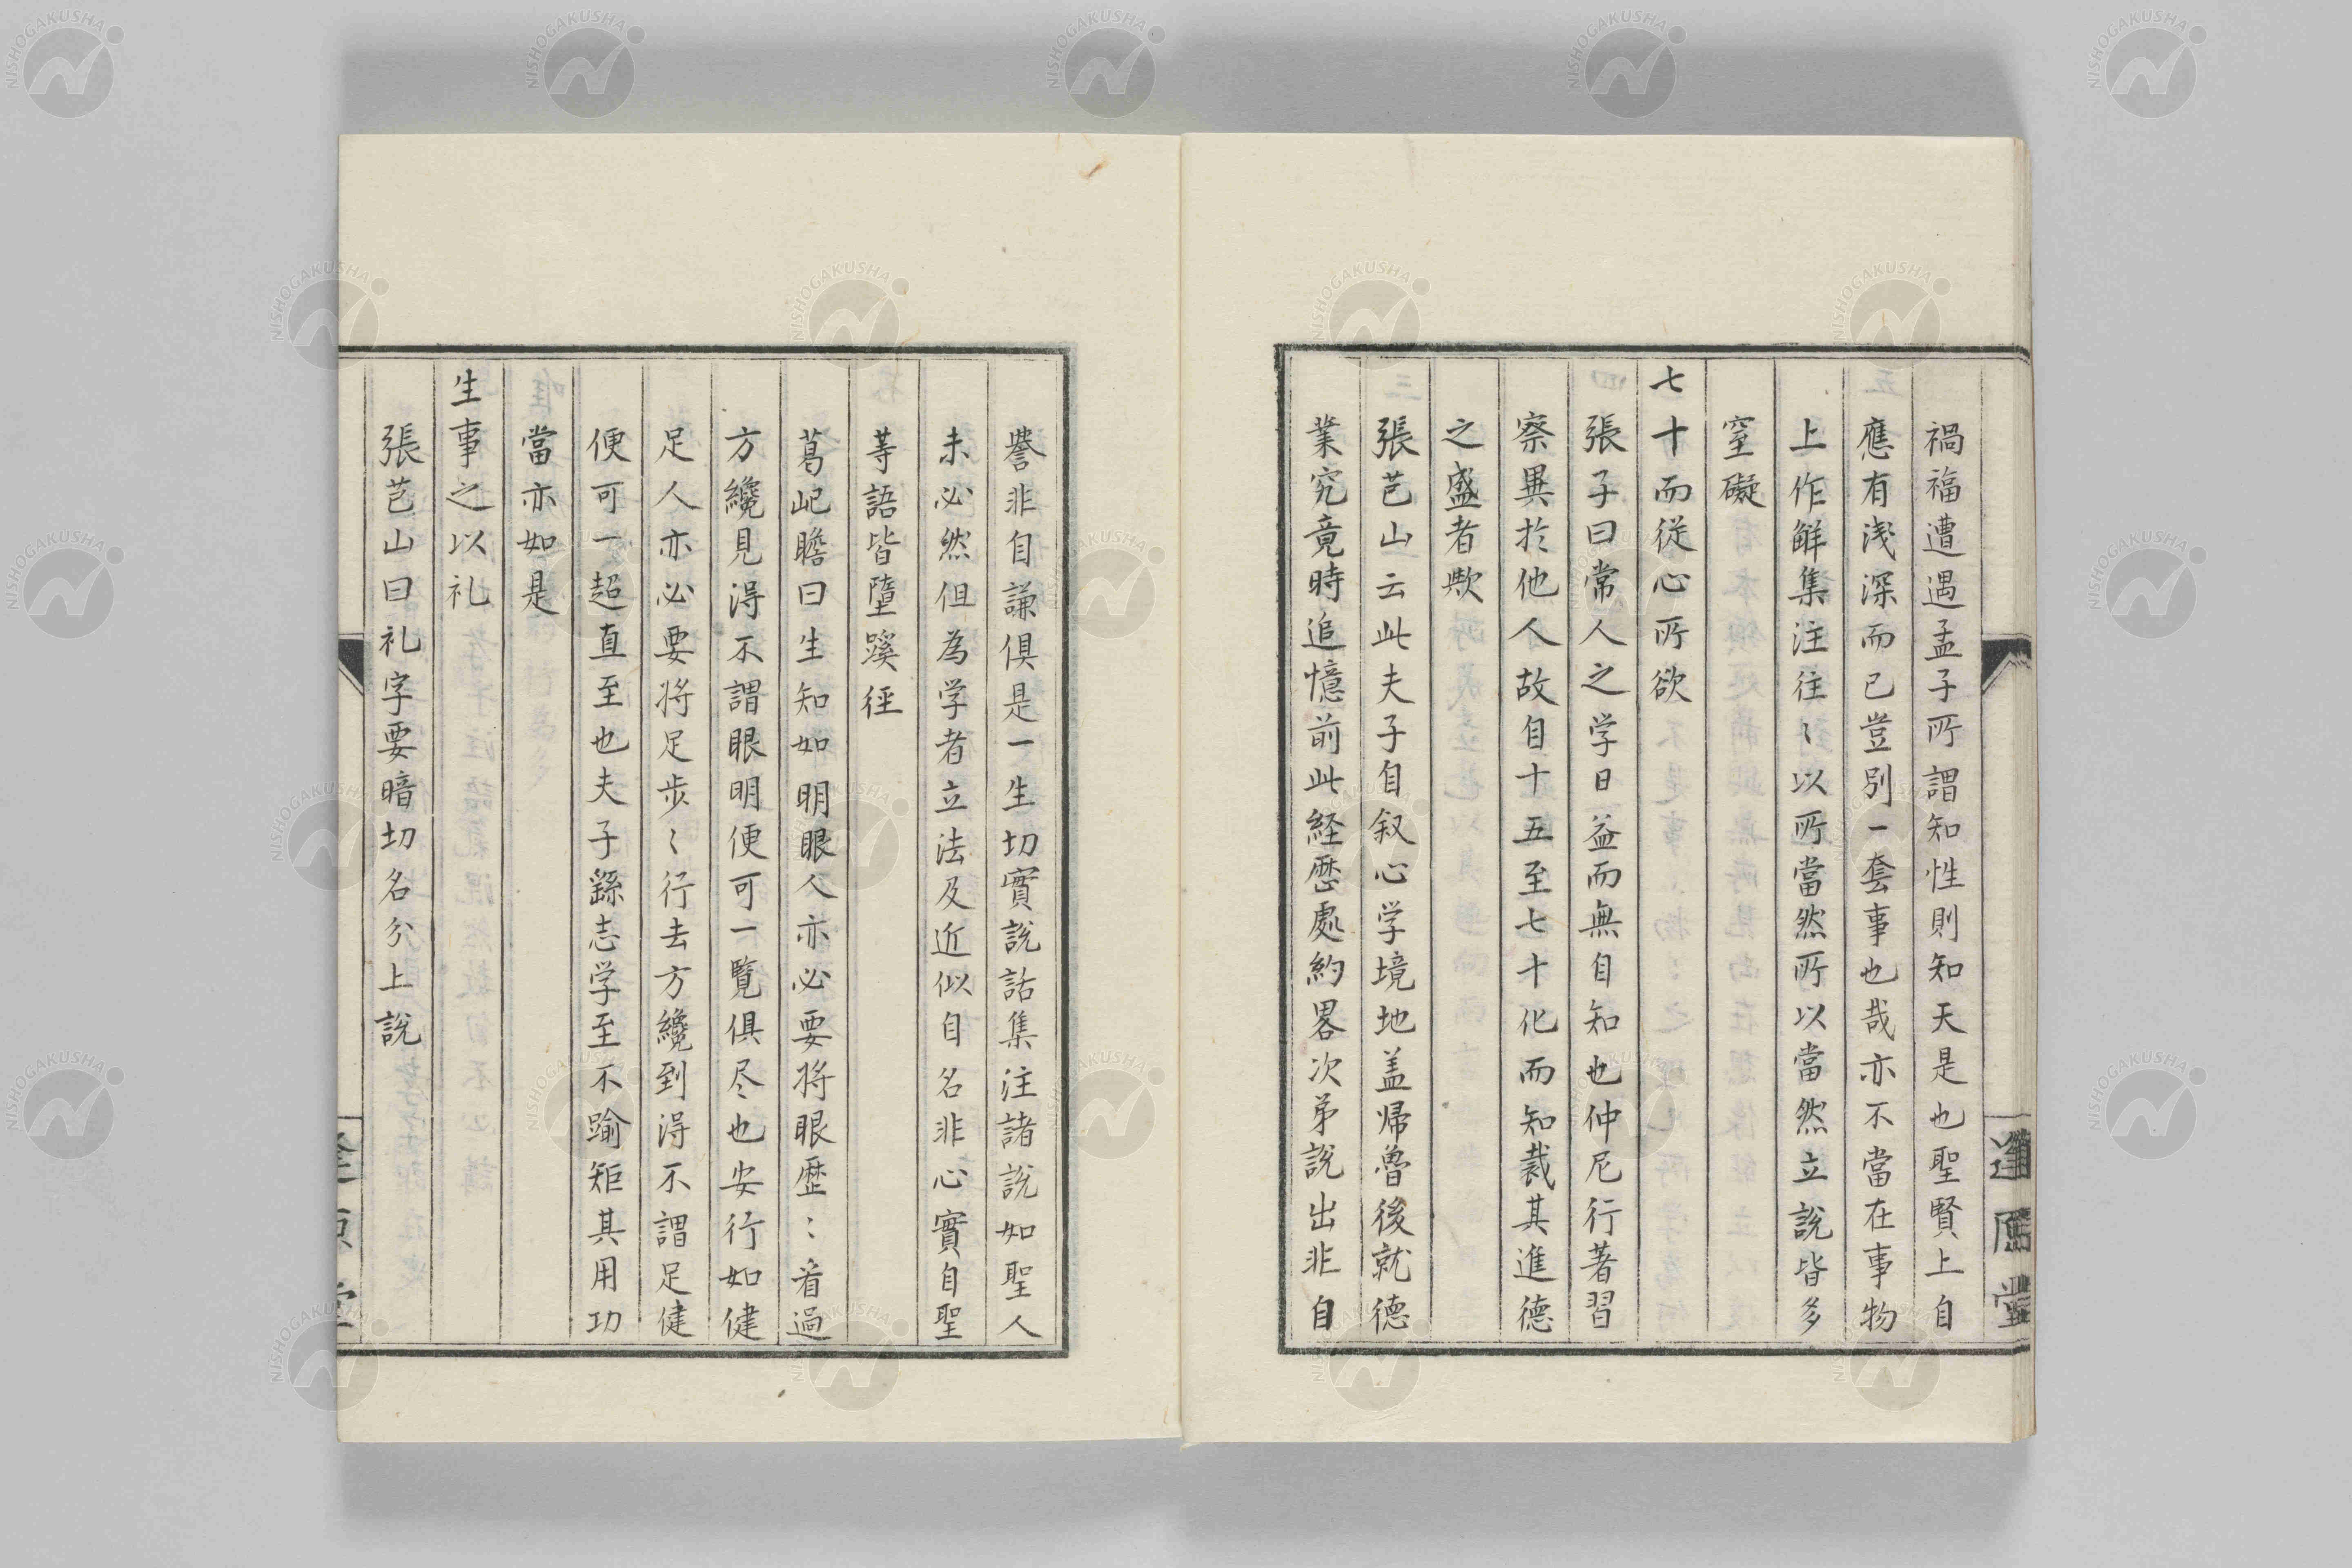 禍福遭遇孟子所謂知性則知天是也聖賢上自
應有浅深而已豈別一套事也哉亦不當在事物
上作觧集注往〻以所當然所以當然立說皆多
窒礙
七十而従心所欲
張子曰常人之学日益而無自知也仲尼行著習
察異於他人故自十五至七十化而知裁其進德
之盛者歟
張芑山云此夫子自叙心学境地盖帰魯後就德
業究竟時追憶前此経歴處約畧次弟說出非自
譽非自謙俱是一生切實說話集注諸說如聖人
未必然但為学者立法及近似自名非心實自聖
等語皆墮蹊徑
葛屺瞻曰生知如明眼人亦必要将眼歴〻看過
方纔見得不謂眼明便可一覧俱尽也安行如健
足人亦必要将足步〻行去方纔到得不謂足健
便可一超直至也夫子繇志学至不踰矩其用功
當亦如是
生事之以礼
張芑山曰礼字要暗切名分上說
逢原堂
NISHOGAKUSHA